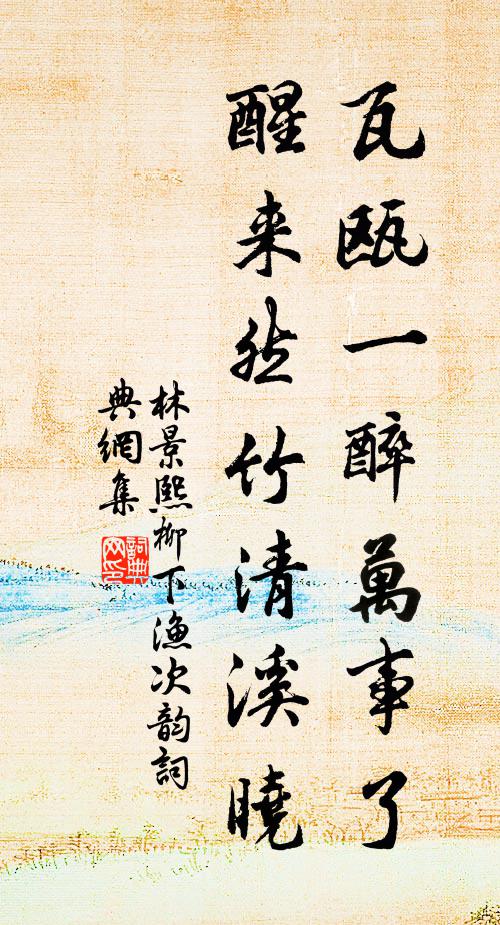 瓦甌一醉萬事了
醒来然竹清溪曉
林景熙柳下漁次韵詞
典網集
詞典
网印